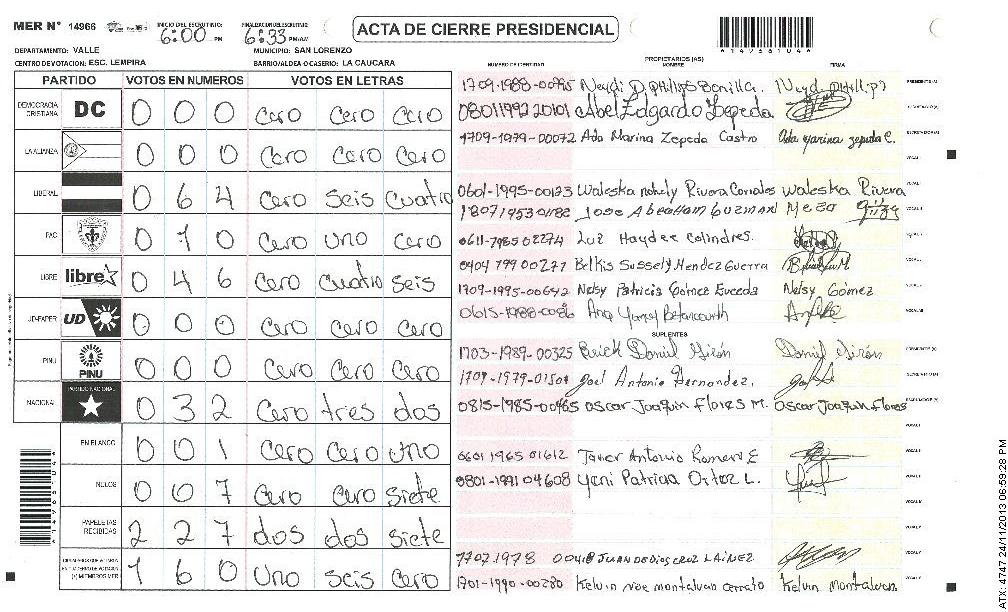 MER N° 14966
INICIO DEL ESCRUTINIO: 6:00 PM
FINALIZACION DEL ESCRUTINIO: 6:33 PM/AM
ACTA DE CIERRE PRESIDENCIAL
A149661041
DEPARTAMENTO: VALLE
MUNICIPIO: SAN LORENZO
CENTRO DE VOTACION: ESC. LEMPIRA
BARRIO/ALDEA O CASERIO: LA CAUCARA
PARTIDO VOTOS EN NUMEROS VOTOS EN LETRAS
DEMOCRACIA CRISTIANA DC 0 0 0 Cero Cero Cero
LA ALIANZA 0 0 0 Cero Cero Cero
LIBERAL 0 6 4 Cero Seis Cuatro
PAC 0 1 0 Cero uno Cero
LIBRE libre 0 4 6 Cero Cuatro Seis
UD-FAPER UD 0 0 0 Cero Cero Cero
PINU PINU 0 0 0 Cero Cero Cero
NACIONAL PARTIDO NACIONAL 0 3 2 Cero tres dos
EN BLANCO 0 0 1 Cero Cero uno
NULOS 0 0 7 Cero Cero Siete
PAPELETAS RECIBIDAS 2 2 7 dos dos Siete
1 6 0 Uno Seis Cero
NUMERO DE IDENTIDAD PROPIETARIOS (AS) NOMBRE FIRMA
Bonilla.
0801199220101 Abel Edgardo Zepeda
1709-1979-00072 Ada Marina Zepeda Castro Ada marina zepeda C.
0601-1995-00123 Waleska nohely Rivera Waleska Rivera
Jose Abraham Guzman Meza
Luz Haydee Colindres.
Belkis Sussely Mendez Guerra
1709-1995-00642 Nelsy Patricia Gómez Nelsy Gómez
0615-1988-0086 Ana Betancourth
SUPLENTES
1703-1989-00325 Daniel Girón Daniel Girón
Joel Antonio Hernandez.
0815-1985-00465 Oscar Joaquin Flores M. Oscar Joaquin Flores
0601 1965 01612 Antonio Romero E
0801-1991 04608 Yeni Patricia Ortez L.
1702 1978 00418 JUAN DE DIOS CRUZ LAINEZ
1701-1990-00280 Kelvin noe montalvan cerrato Kelvin montalvan
ATX: 4747 24/11/2013 06:59:28 PM